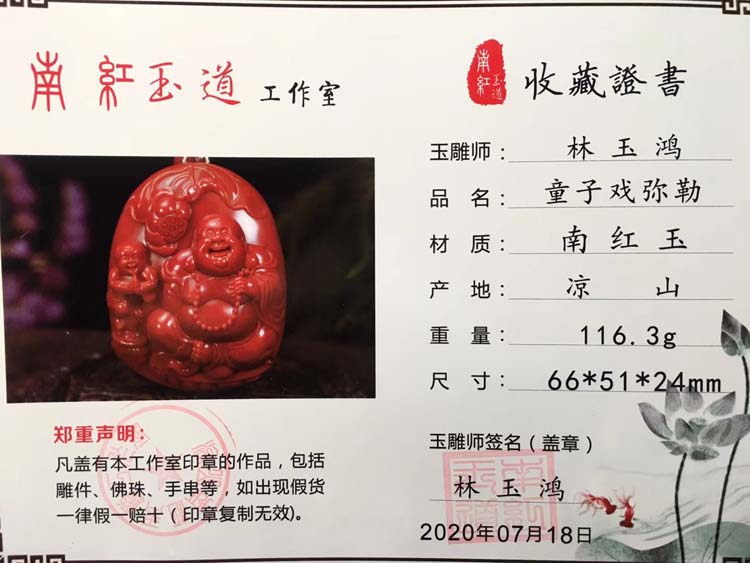 南紅玉道工作室
南紅玉道
收藏證書
玉雕师：林玉鸿
品名：童子戏弥勒
材质：南红玉
产地：凉山
重量：116.3g
尺寸：66*51*24mm
郑重声明：
凡盖有本工作室印章的作品，包括
雕件、佛珠、手串等，如出现假货
一律假一赔十（印章复制无效)。
玉雕师签名（盖章）
林玉鸿
2020年07月18日